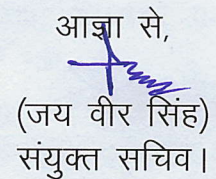 आज्ञा से,
(जय वीर सिंह)
संयुक्त सचिव।